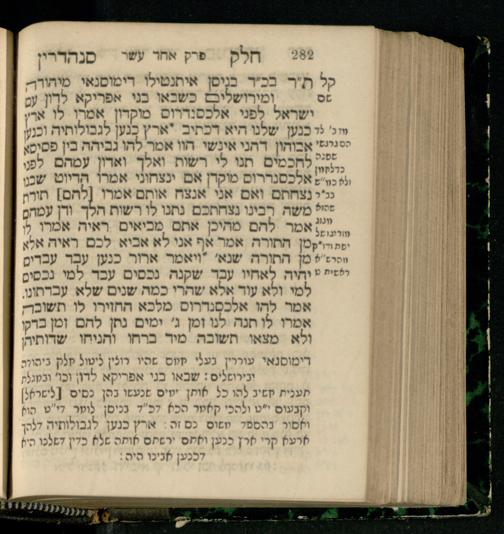 282 חלק פרק אחד עשר סנהדרין
קל ת״ר בכ״ד בניסן איתנטילו דימוסנאי מיהודה
שם ומירושלים כשבאו בני אפריקא לדון עם
ישראל לפני אלכסנדרוס מוקדון אמרו לו ארץ
כנען שלנו היא דכתיב *ארץ כנען לגבולותיה וכנען
אבוהון דהני אינשי הוו אמר להו גביהה בן פסיסא
לחכמים תנו לי רשות ואלך ואדון עמהם לפני
אלכסנדרוס מוקדן אם ינצחוני אמרו הדיוט שבנו
נצחתם ואם אני אנצח אותם אמרו [להם] תורת
משה רבינו נצחתכם נתנו לו רשות הלך ודן עמהם
אמר להם מהיכן אתם מביאים ראיה אמרו לו
מן התורה אמר אף אני לא אביא לכם ראיה אלא
מן התורה שנא׳ *ויאמר ארור כנען עבד עבדים
יהיה לאחיו עבד שקנה נכסים עבד למי נכסים
למי ולא עוד אלא שהרי כמה שנים שלא עבדתונו.
אמר להו אלכסנדרוס מלכא החזירו לו תשובה
אמרו לו תנה לנו זמן ג׳ ימים נתן להם זמן בדקו
ולא מצאו תשובה מיד ברחו והניחו שדותיהן
דימוסנאי עוררין בעלי חמס שהיו רוצין ליטול חלק ביהודה
ובירושלים: שבאו בני אפריקא לדון וכו׳ ובמגלת
תענית חשיב להו כל אותן ימים שנעשו בהן נסים [לישראל]
וקבעום י״ט ולהכי קאמר הכא דכ״ד בניסן לומר די״ט הוא
ואסור בהספד משום נס זה: ארץ כנען לגבולותיה דלהך
ארעא קרי ארץ כנען ואתם ירשתם אותה שלא כדין דשלנו היא
דכנען אבינו היה: